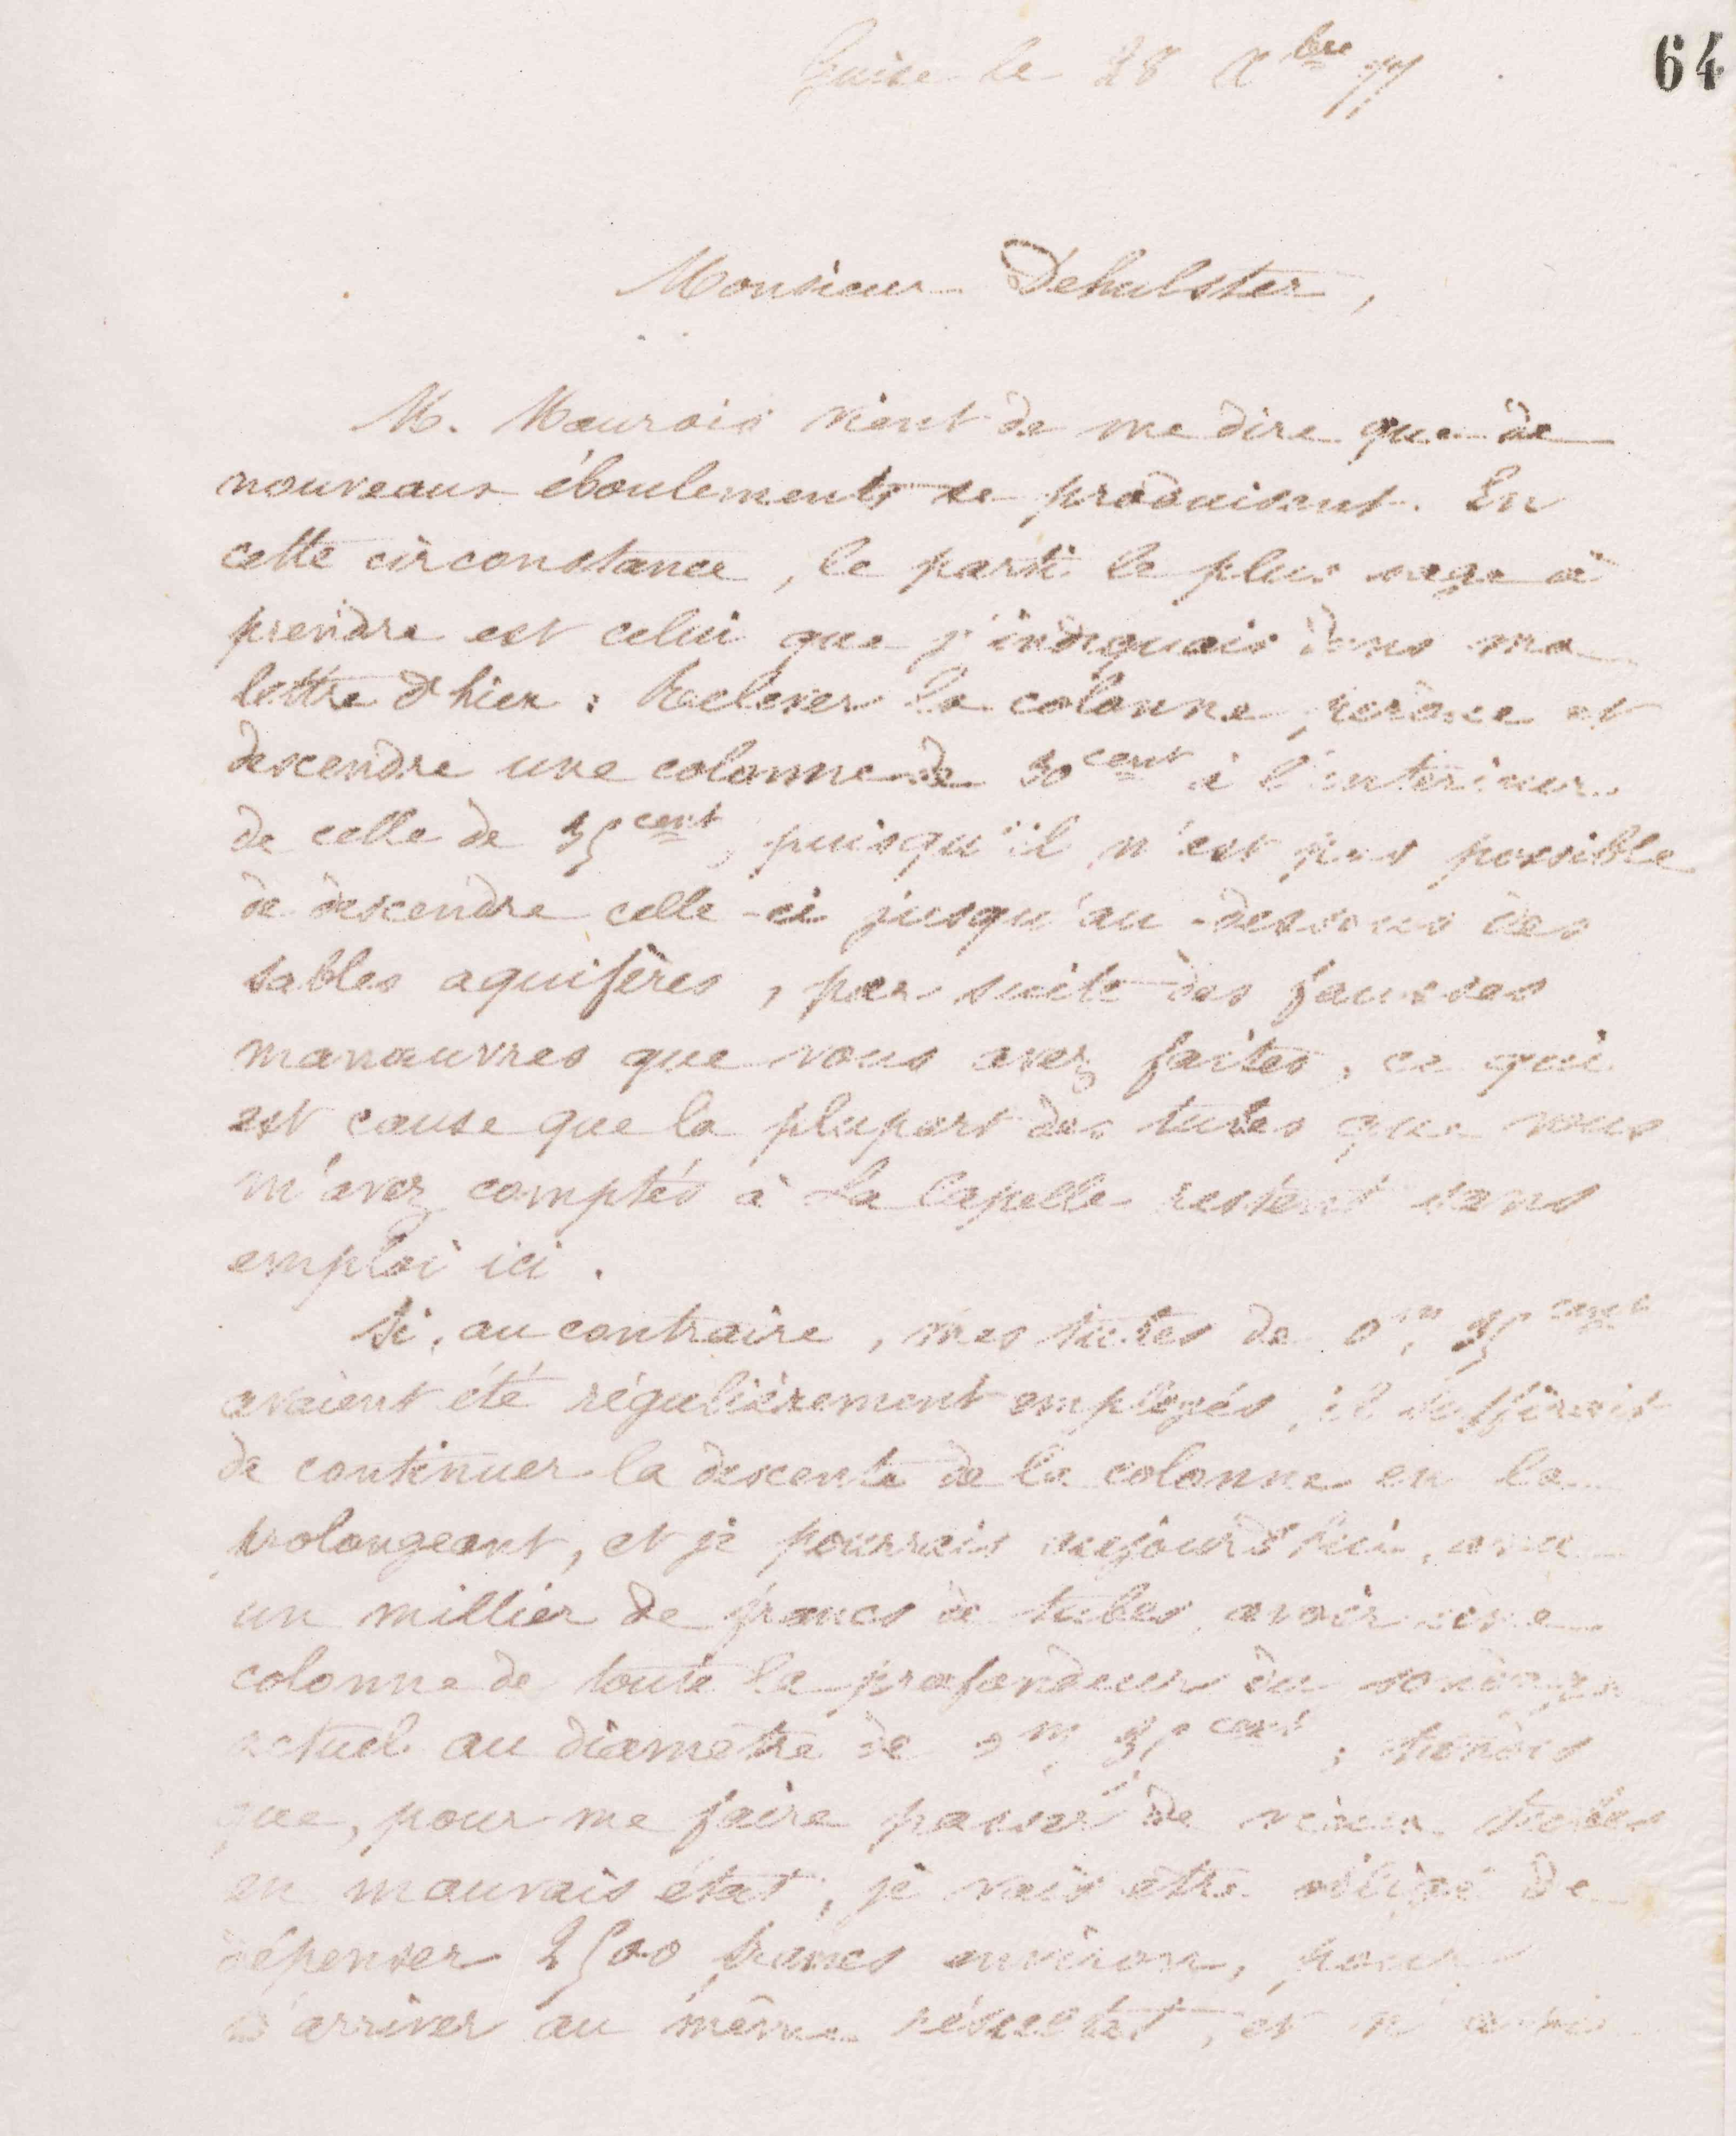 64
Guise le 28 Xbre 77
Monsieur Dehulster,
M. Maurois vient de me dire que de
nouveaux éboulements se produisent. En
cette circonstance, le parti le plus sage à
prendre est celui que j'indiquais dans ma
lettre d'hier : Relever la colonne perdue et
descendre une colonne de 30 cent à l'intérieur
de celle de 35 cent, puisqu'il n'est pas possible
de descendre celle-ci jusqu'au-dessous des
sables aquifères, par suite des fausses
manœuvres que vous avez faites, ce qui
est cause que la plupart des tubes que vous
m'avez comptés à La Capelle restent sans
emploi ici.
Si, au contraire, mes tubes de 0m, 35 cent
avaient été régulièrement employés, il suffirait
de continuer la descente de la colonne en la
prolongeant, et je pourrais aujourd'hui, avec
un millier de francs de tubes, avoir une
colonne de toute la profondeur du sondage
actuel au diamètre de 0m, 35 cent ; tandis
que, pour me faire passer de vieux tubes
en mauvais état, je vais être obligé de
dépenser 2500 francs environ, pour
arriver au même résultat, et n'avoir